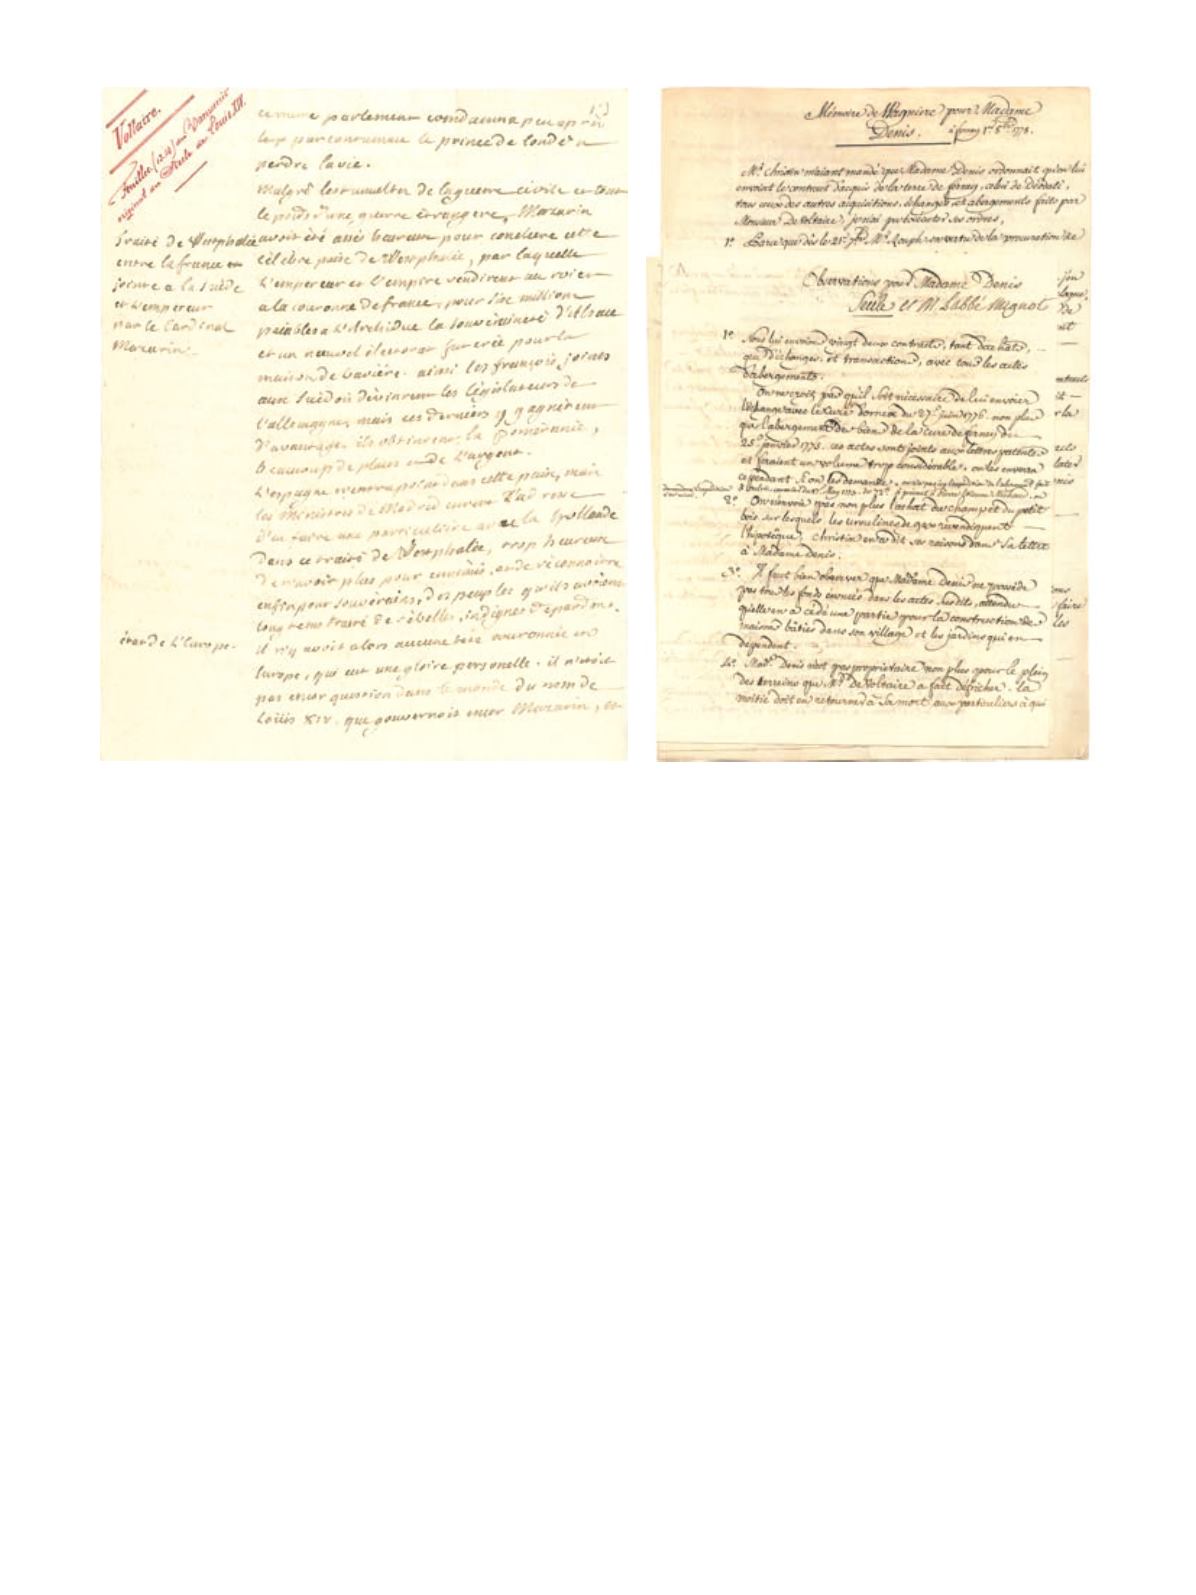 Voltaire.
feuillet (1234) du Manuscrit
original du Siècle de Louis XIV.
ce même parlement condamna peu après
leur par contumace le prince de Condé à
perdre la vie.
Malgré les tumultes de la guerre civile et tout
le poids d'une guerre étrangere, Mazarin
avoit été assés heureux pour conclure cette
célebre paix de Westphalie, par laquelle
L'empereur et l'empire vendirent au roi et
a la couronne de france, pour six millions
paiables a L'Archiduc la souveraineté d'Alsace
et un nouvel électorat fut crée pour la
maison de baviére. ainsi les françois, joints
aux suédois devinrent les législateurs de
l'allemagne, mais ces derniers y gagnèrent
d'avantage. ils obtinrent la Poméranie,
beaucoup de places et de L'argent.
L'espagne n'entra point dans cette paix, mais
les Ministres de Madrid eurent L'adresse
d'en faire une particuliére avec la Hollande
dans ce traité de Westphalie, trop heureux
de n'avoir plus pour ennemis, et de réconnoitre
enfin pour souverains, des peuples qu'ils avoient
longtems traité de rébelles, indignes de pardon.
il n'y avoit alors aucune tête couronnée en
Europe, qui eut une gloire personelle. il n'étoit
pas encor question dans le monde du nom de
Loüis XIV. que gouvernoit encor Mazarin, et
Traité de Westphalie
entre la france
jointe a la suède
et L'empereur
par le Cardinal
Mazarin
état de L'Europe.
Mémoire de Wagniere pour Madame
Denis. à ferney 1er 8bre 1778.
Mr. Christin m'aiant mandé que Madame Denis ordonnait qu'on lui
envoiat le contrat d'acquis de la terre de ferney, celui de Déodati,
tous ceux des autres acquisitions, échanges, et abergements faits par
Monsieur De Voltaire, je n'ai pu exécuter ses ordres,
1o. Parce que dès le 21e 7bre Mr. Rouph en vertu de la procuration de
Observations pour Madame Denis
Seule et M. L'abbé Mignot
1o. Nous lui envoions vingt deux contrats, tant d'achats,
que d'échanges, et transaction, avec tous les actes
d'abergements.
On ne croit pas qu'il soit nécessaire de lui envoier
l'échange avec le Curé d'ornex du 27e juin 1776. non plus
que l'abergement des biens de la cure de ferney du
25e janvier 1775. ces actes sont joints aux lettres patentes
et feraient un volume trop considérable, on les enverra
cependant si on les demande,
2o. On n'envoie pas non plus l'achat du champ et du petit
bois sur lesquels les ursulines de gex revendiquent
l'hipotèque, Christin en a dit ses raisons dans sa lettre
à Madame Denis.
3o. Il faut bien observer que Madame Denis ne possède
pas tous les fonds énoncés dans les actes susdits, attendu
qu'elle en a cédé une partie pour la construction de
maisons bâties dans son village et les jardins qui en
dépendent.
4o. Made. Denis n'est pas propriétaire non plus pour le plein
des terreins que Mr. De Voltaire a fait défricher. la
moitié doit en retourner à sa mort aux particuliers à qui